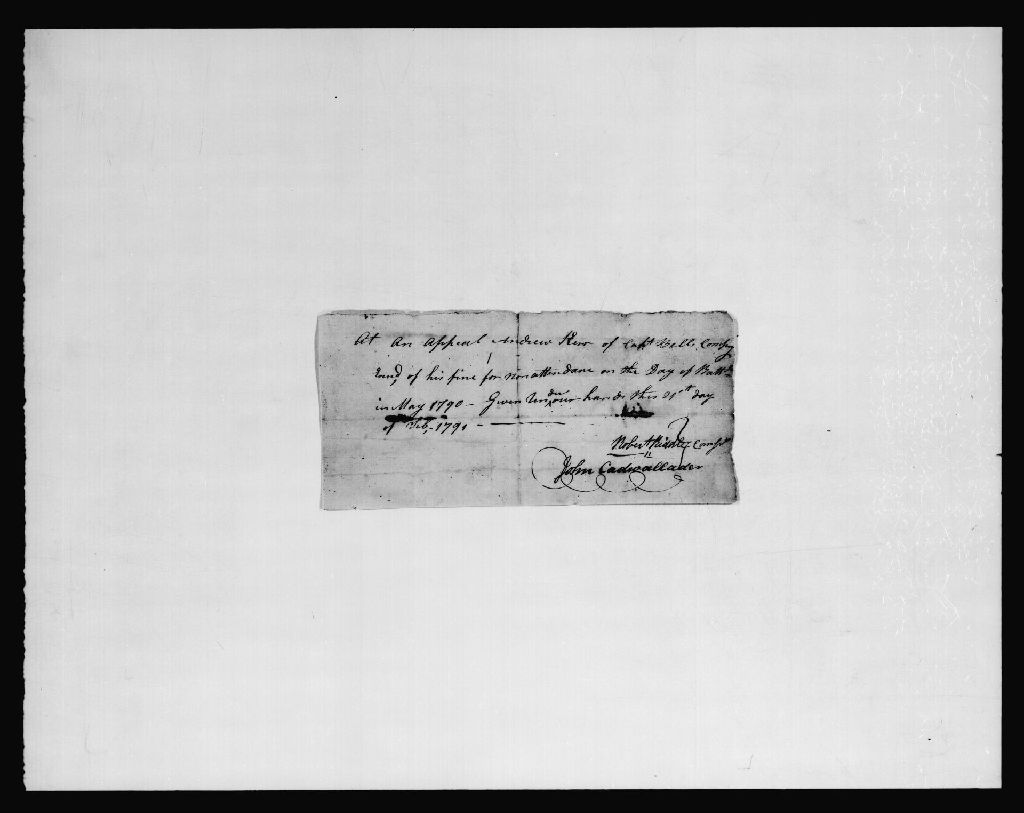 At an Appeal Andrew Kerr of Capt Bells Compy
of his fine for nonattendance on the Day of Battn
in May 1790 - Given under our hands this 21st day
of Feb, 1791
Robert
John Cadwallader